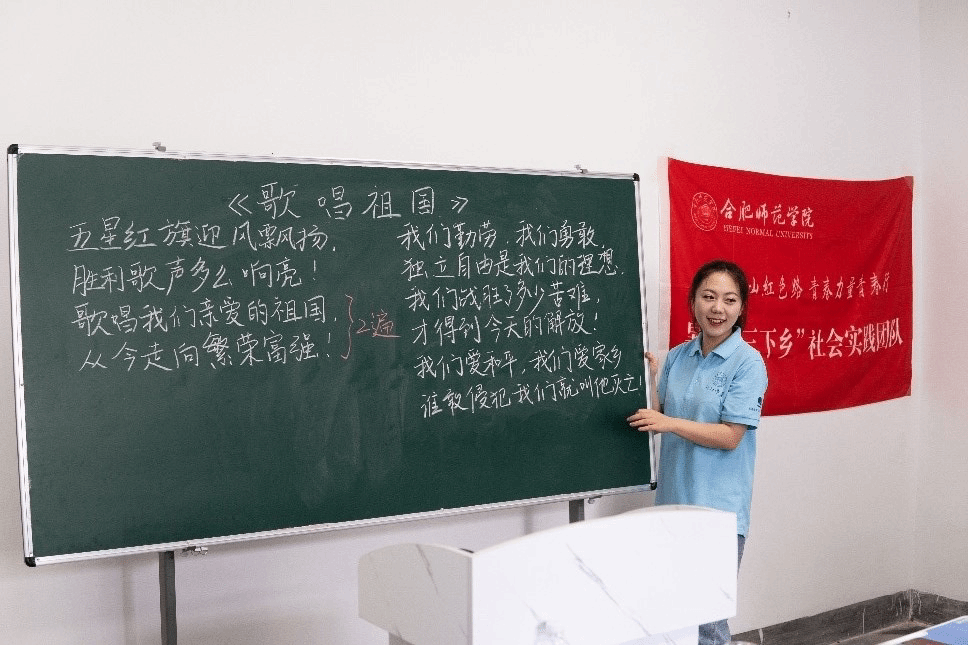 《歌唱祖国》
五星红旗迎风飘扬,
胜利歌声多么响亮!
歌唱我们亲爱的祖国,
从今走向繁荣富强!
}2遍
我们勤劳,我们勇敢,
独立自由是我们的理想.
我们战胜了多少苦难,
才得到今天的解放!
我们爱和平,我们爱家乡
谁敢侵犯我们就叫他灭亡!
合肥师范学院
HEFEI NORMAL UNIVERSITY
山红色路 青春力量青春行
下乡”社会实践团队